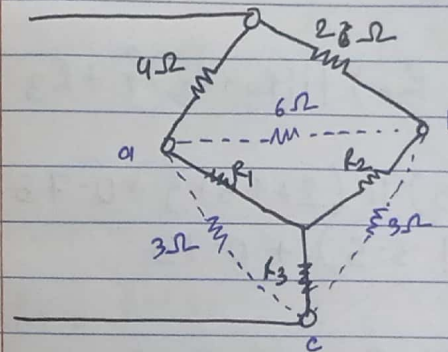 4Ω
6Ω
a
R1
R2
3Ω
3Ω
R3
c